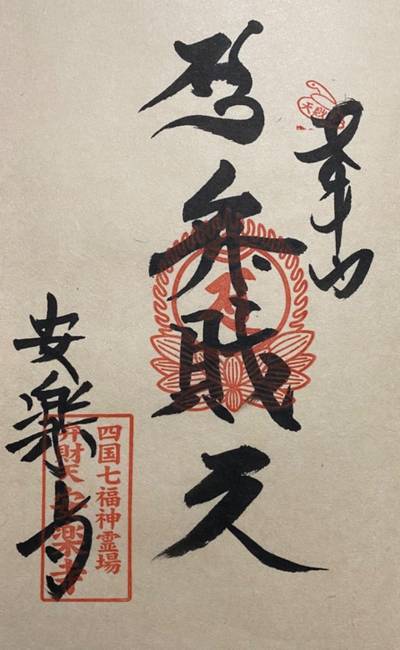 弁財天
安楽寺
四国七福神霊場
弁財天安楽寺